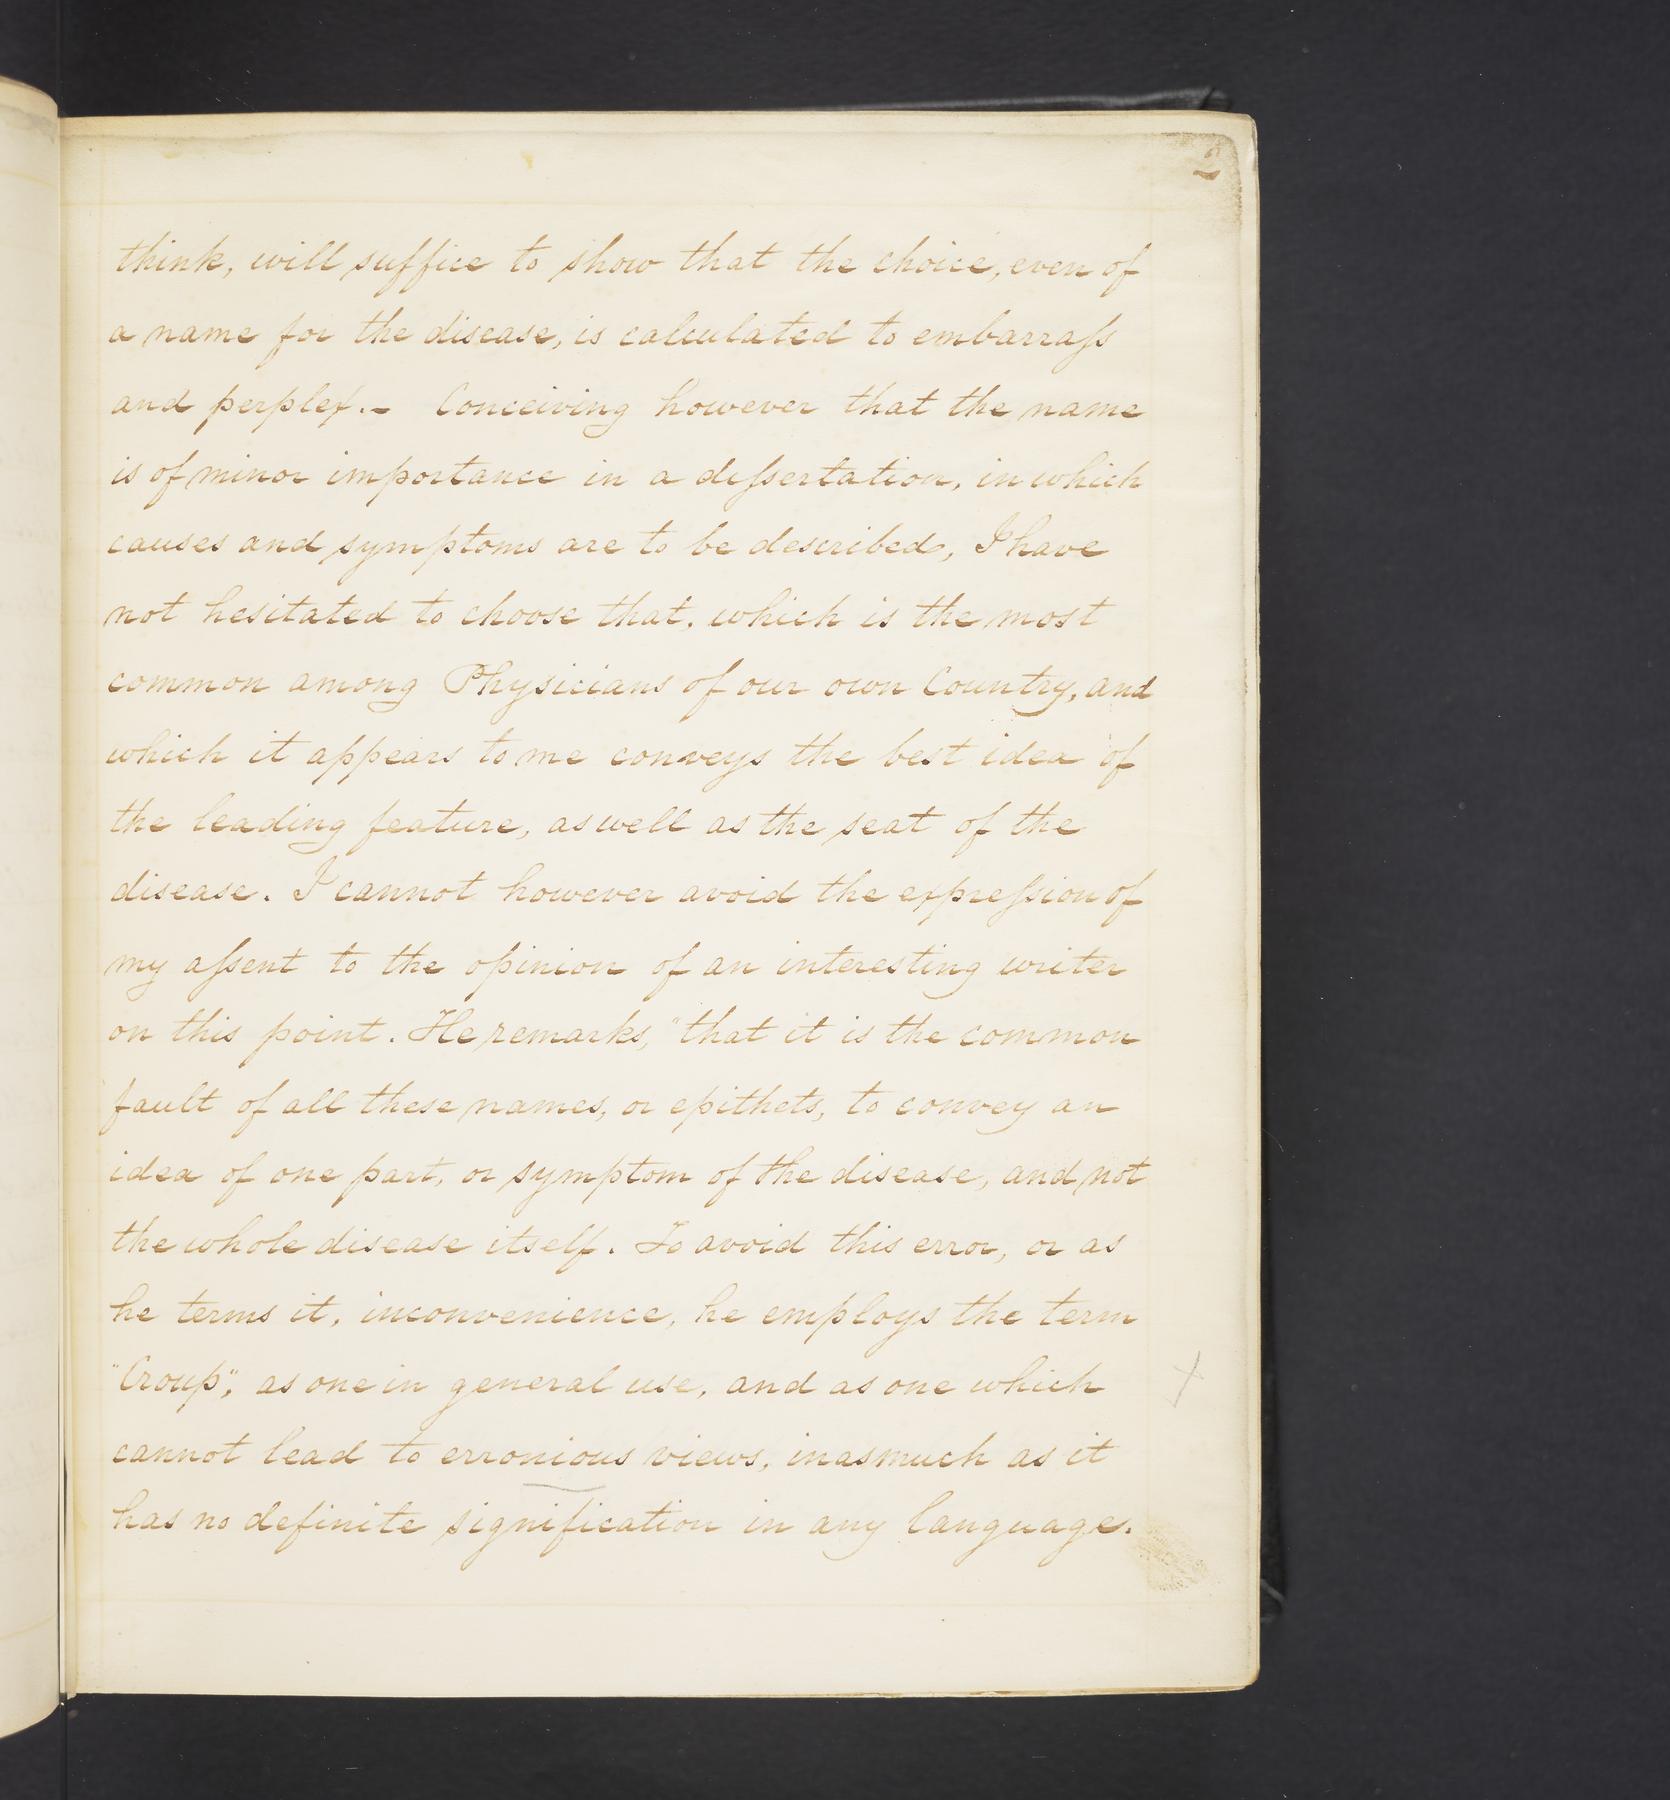 2
think, will suffice to show that the choice, even of
a name for the disease, is calculated to embarraſs
and perplex.- Conceiving however that the name
is of minor importance in a diſsertation, in which
causes and symptoms are to be described, I have
not hesitated to choose that, which is the most
common among Physicians of our own Country, and
which it appears to me conveys the best idea of
the leading feature, as well as the seat of the
disease. I cannot however avoid the expreſsion of
my aſsent to the opinion of an interesting writer
on this point. He remarks, "that it is the common
fault of all these names, or epithets, to convey an
idea of one part, or symptom of the disease, and not
the whole disease itself. To avoid this error, or as
he terms it, inconvenience, he employs the term
"Croup", as one in general use, and as one which
cannot lead to erronious views, inasmuch as it
has no definite signification in any language.